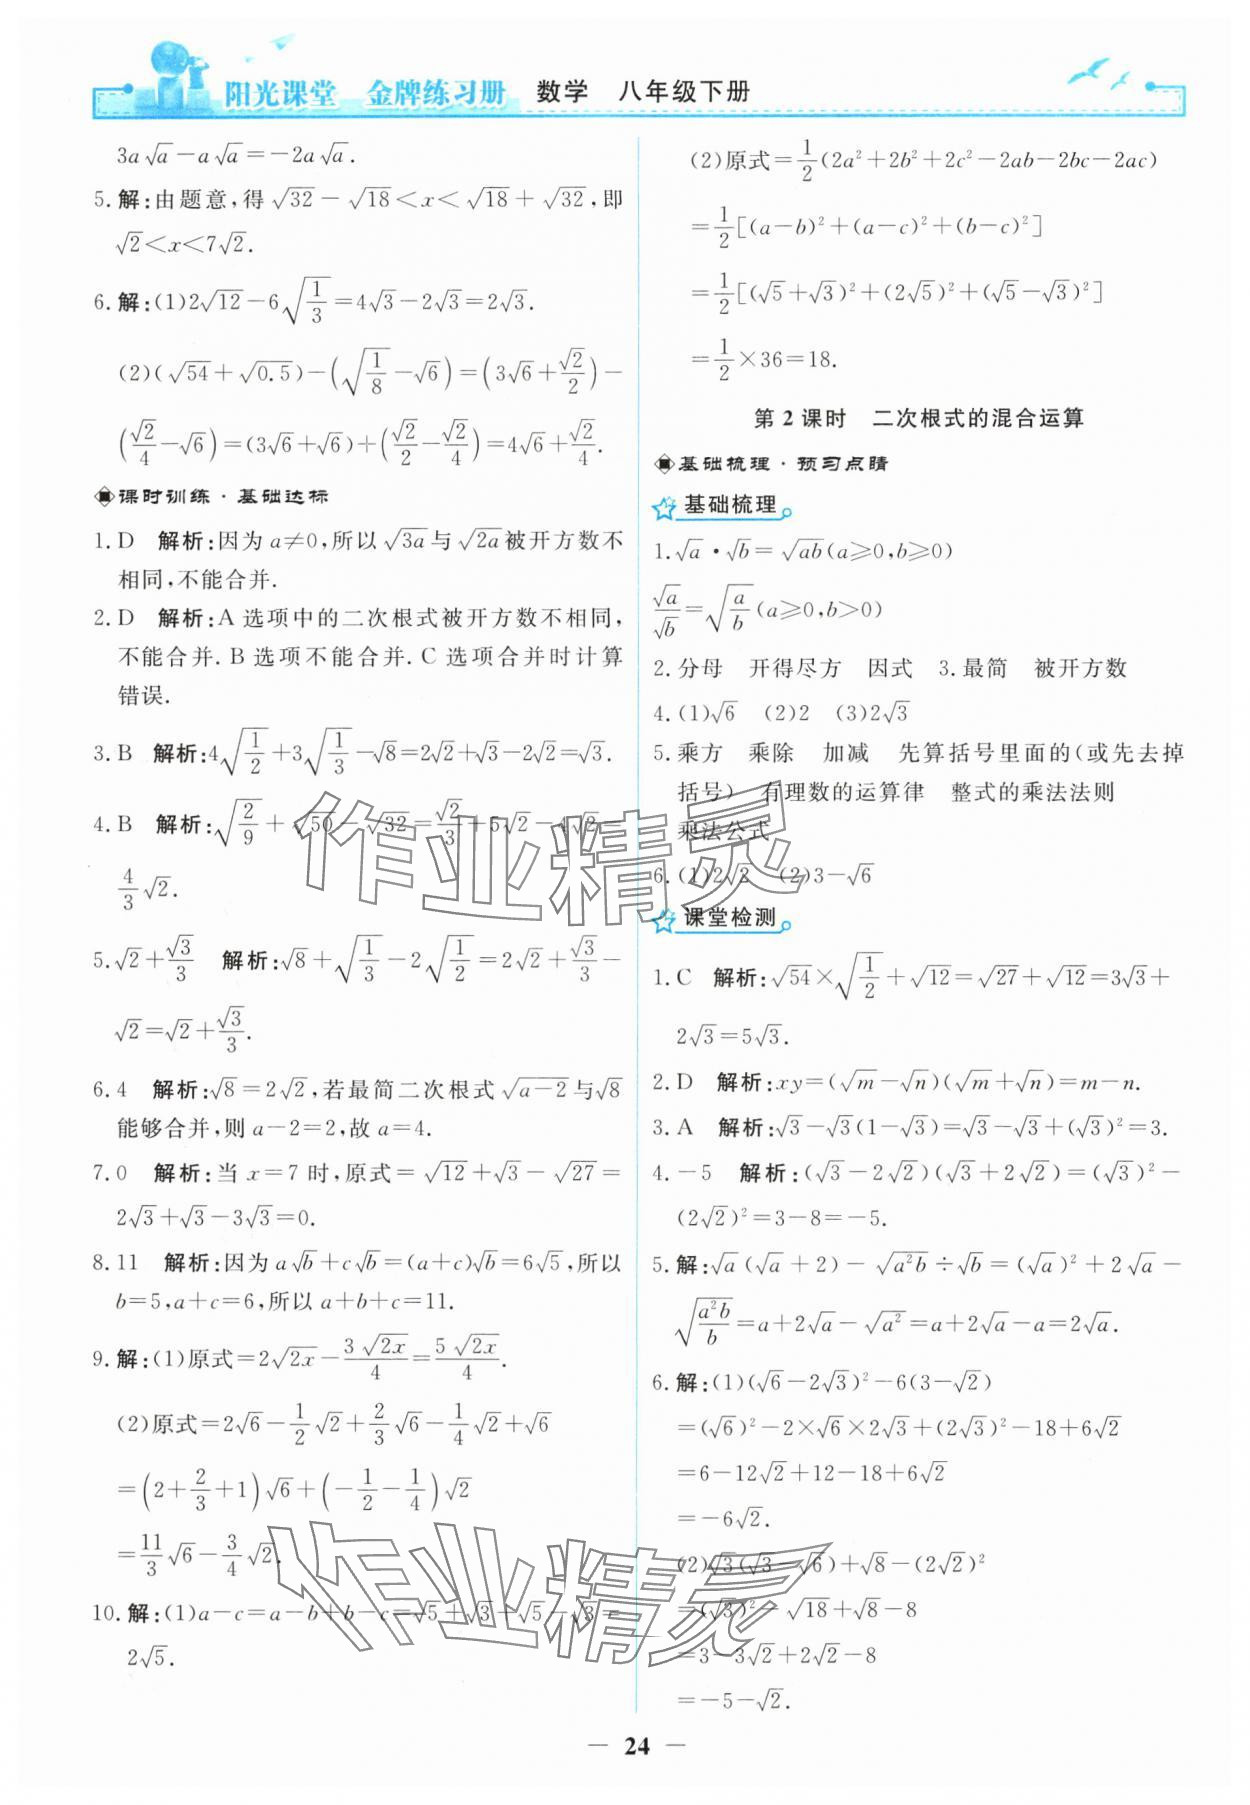 阳光课堂 金牌练习册 数学 八年级下册
3a√a－a√a＝－2a√a.
5. 解:由题意,得√32－√18＜x＜√18＋√32,即
√2＜x＜7√2.
6. 解:(1)2√12－6√(1/3)＝4√3－2√3＝2√3.
(2)(√54＋√0.5)－(√(1/8)－√6)＝(3√6＋√2/2)－
(√2/4－√6)＝(3√6＋√6)＋(√2/2－√2/4)＝4√6＋√2/4.
课时训练·基础达标
1. D 解析:因为a≠0,所以√3a与√2a被开方数不
相同,不能合并.
2. D 解析:A选项中的二次根式被开方数不相同,
不能合并.B选项不能合并.C选项合并时计算
错误.
3. B 解析:4√(1/2)＋3√(1/3)－√8＝2√2＋√3－2√2＝√3.
4. B 解析:√(2/9)＋√50－√32＝√2/3＋5√2－4√2＝
4/3√2.
5. √2＋√3/3 解析:√8＋√(1/3)－2√(1/2)＝2√2＋√3/3－
√2＝√2＋√3/3.
6. 4 解析:√8＝2√2,若最简二次根式√(a－2)与√8
能够合并,则a－2＝2,故a＝4.
7. 0 解析:当x＝7时,原式＝√12＋√3－√27＝
2√3＋√3－3√3＝0.
8. 11 解析:因为a√b＋c√b＝(a＋c)√b＝6√5,所以
b＝5,a＋c＝6,所以a＋b＋c＝11.
9. 解:(1)原式＝2√2x－3√2x/4＝5√2x/4.
(2)原式＝2√6－1/2√2＋2/3√6－1/4√2＋√6
＝(2＋2/3＋1)√6＋(－1/2－1/4)√2
＝11/3√6－3/4√2.
10. 解:(1)a－c＝a－b＋b－c＝√5＋√3＋√5－√3＝
2√5.
(2)原式＝1/2(2a²＋2b²＋2c²－2ab－2bc－2ac)
＝1/2[(a－b)²＋(a－c)²＋(b－c)²]
＝1/2[(√5＋√3)²＋(2√5)²＋(√5－√3)²]
＝1/2×36＝18.
第2课时 二次根式的混合运算
基础梳理·预习点睛
基础梳理
1. √a·√b＝√ab(a≥0,b≥0)
√a/√b＝√(a/b)(a≥0,b＞0)
2. 分母 开得尽方 因式 3. 最简 被开方数
4. (1)√6 (2)2 (3)2√3
5. 乘方 乘除 加减 先算括号里面的(或先去掉
括号) 有理数的运算律 整式的乘法法则
乘法公式
6. (1)2√2 (2)3－√6
课堂检测
1. C 解析:√54×√(1/2)＋√12＝√27＋√12＝3√3＋
2√3＝5√3.
2. D 解析:xy＝(√m－√n)(√m＋√n)＝m－n.
3. A 解析:√3－√3(1－√3)＝√3－√3＋(√3)²＝3.
4. －5 解析:(√3－2√2)(√3＋2√2)＝(√3)²－
(2√2)²＝3－8＝－5.
5. 解:√a(√a＋2)－√(a²b)÷√b＝(√a)²＋2√a－
√(a²b/b)＝a＋2√a－√(a²)＝a＋2√a－a＝2√a.
6. 解:(1)(√6－2√3)²－6(3－√2)
＝(√6)²－2×√6×2√3＋(2√3)²－18＋6√2
＝6－12√2＋12－18＋6√2
＝－6√2.
(2)√3(√3－√6)＋√8－(2√2)²
＝(√3)²－√18＋√8－8
＝3－3√2＋2√2－8
＝－5－√2.
作业精灵
作业精灵
— 24 —